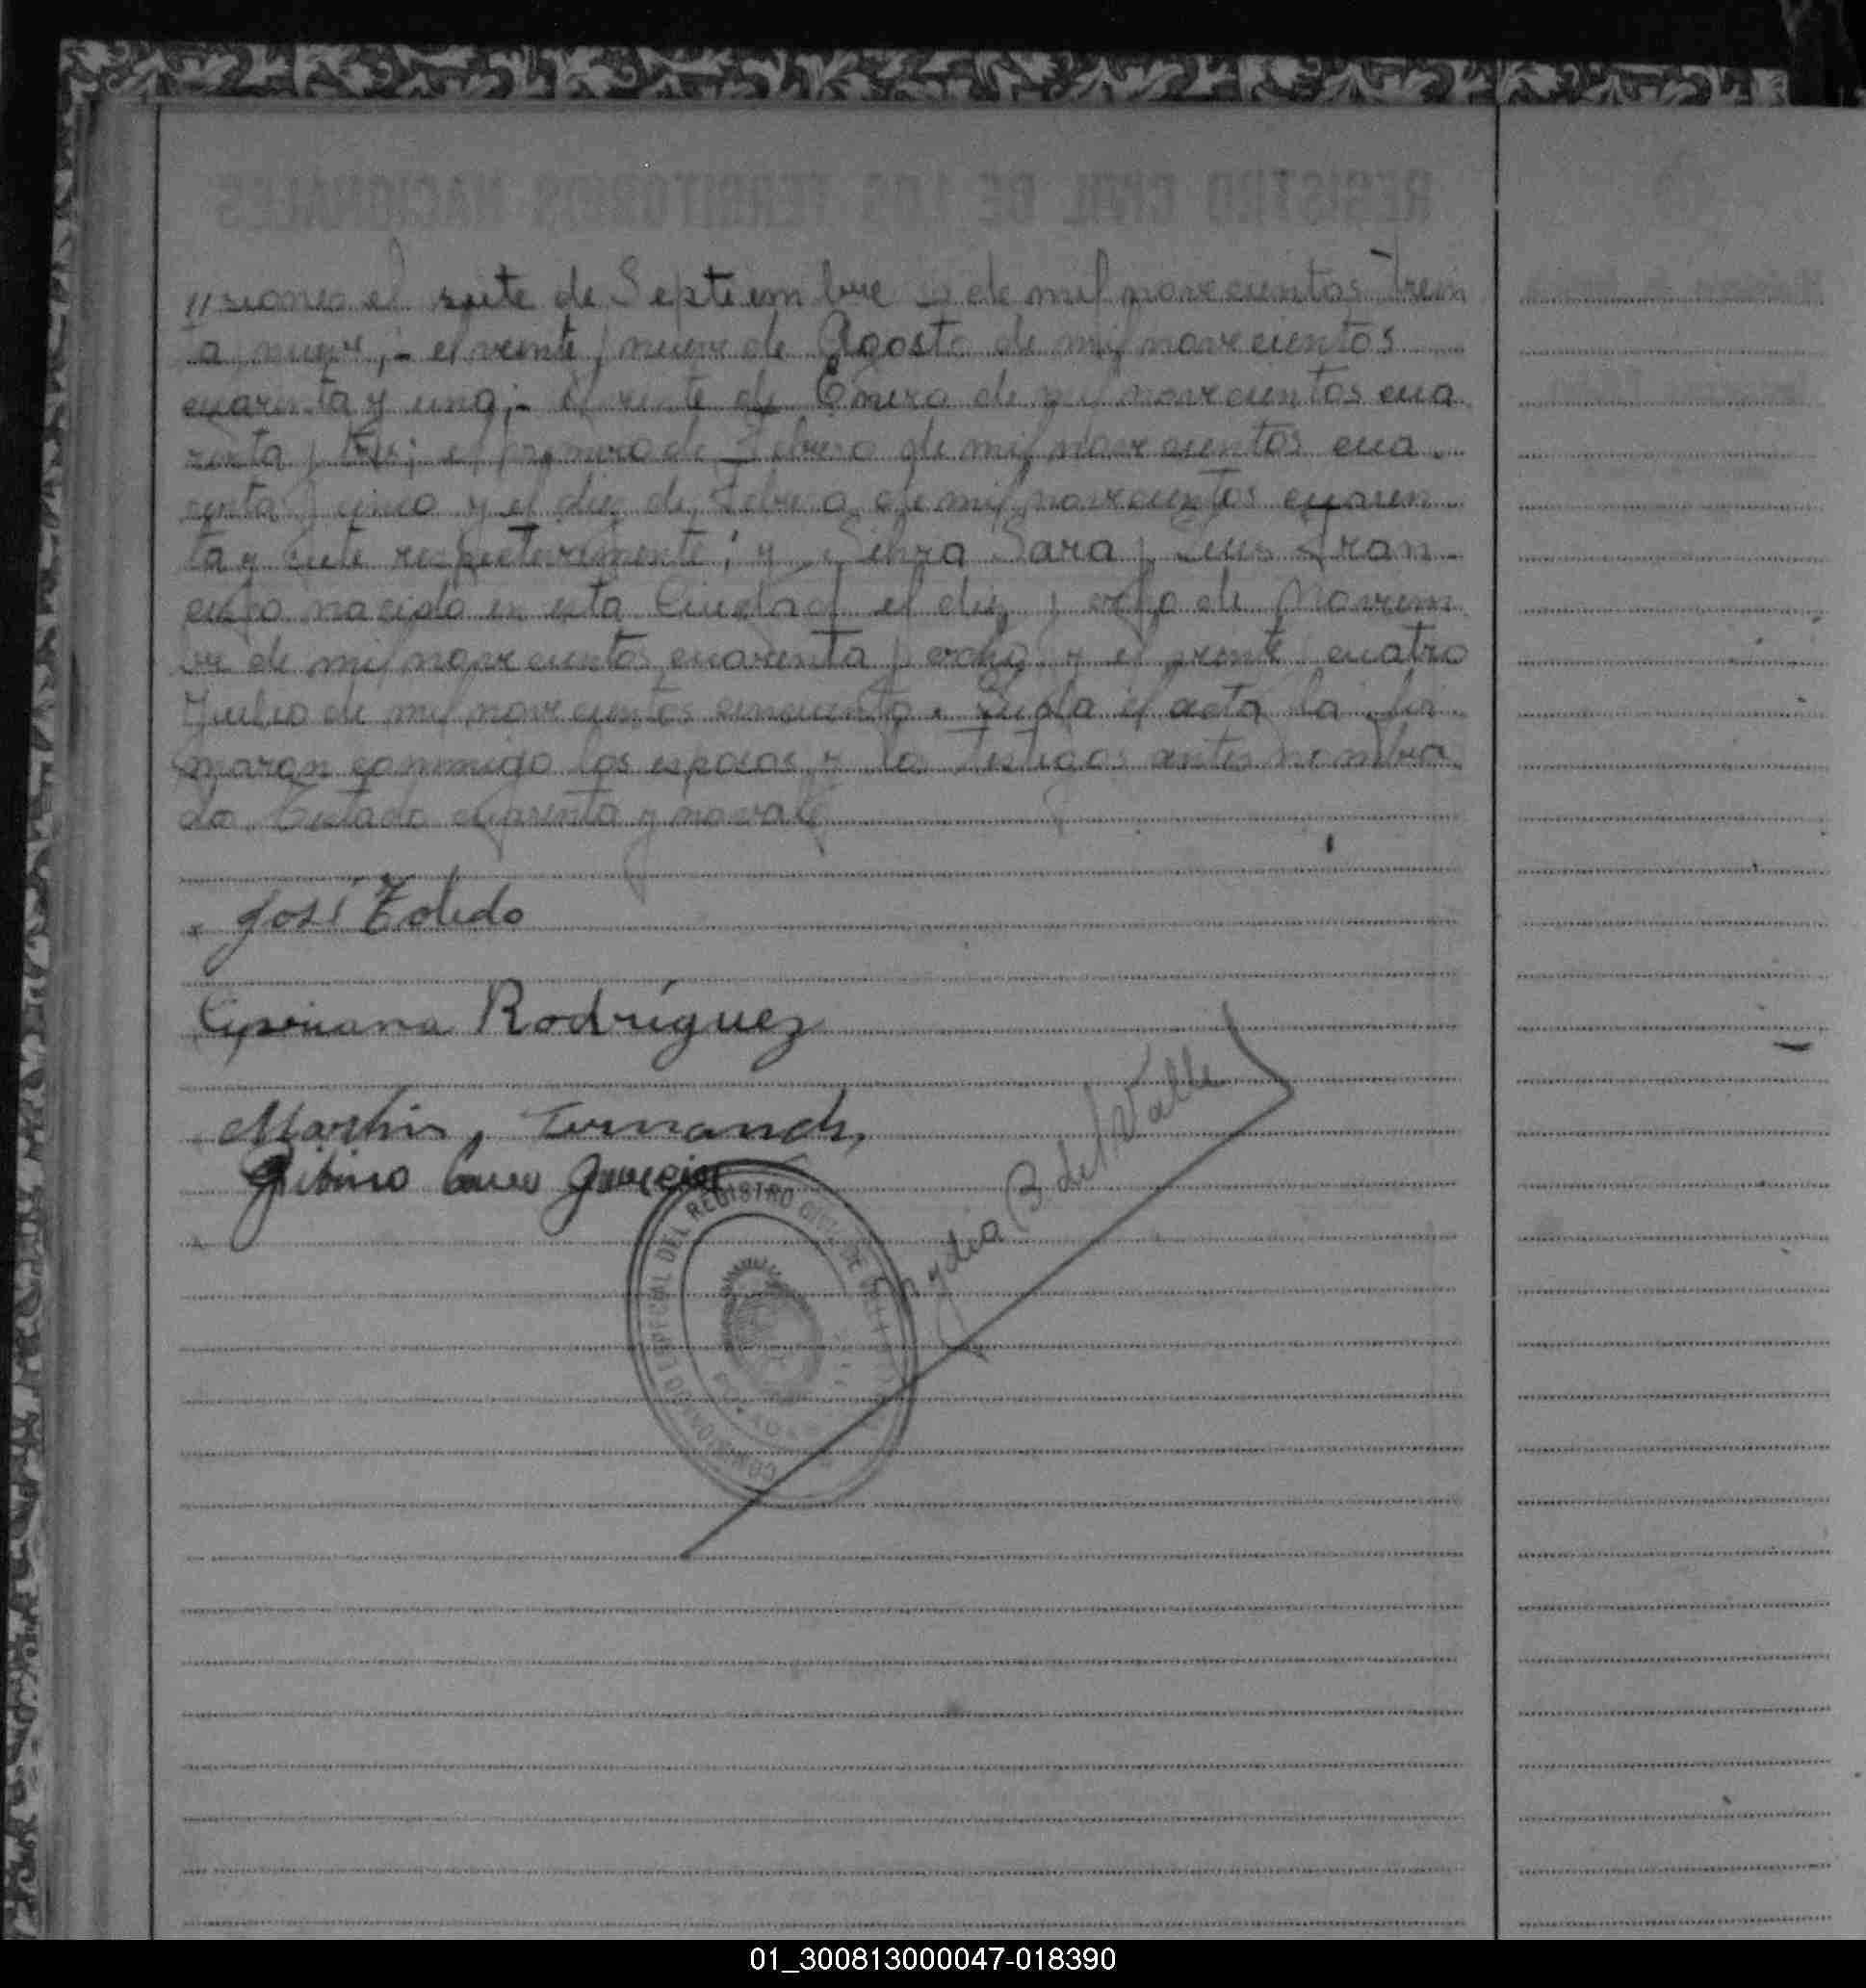 siones el siete de Septiembre de mil novecientos trein
ta y nueve; - el veinte y nueve de Agosto de mil novecientos
cuarenta y uno; - el veinte de Enero de mil novecientos cua
renta y tres; el primero de Febrero de mil novecientos cua
renta y cinco y el diez de Febrero de mil novecientos cuaren
ta y siete respectivamente; y Silvia Sara y Luis Fran
cisco nacido en esta Ciudad el diez y ocho de Noviem
bre de mil novecientos cuarenta y ocho y el veinte y cuatro
Julio de mil novecientos cincuenta. Leida el acta la fir
maron conmigo los esposos y los testigos antes nombra
do. Testado cuarenta y no vale
José Toledo
Cipriana Rodríguez
Martin, Fernandez
García
Lydia B. del Valle
DEL REGISTRO CIVIL DE
01_300813000047-018390